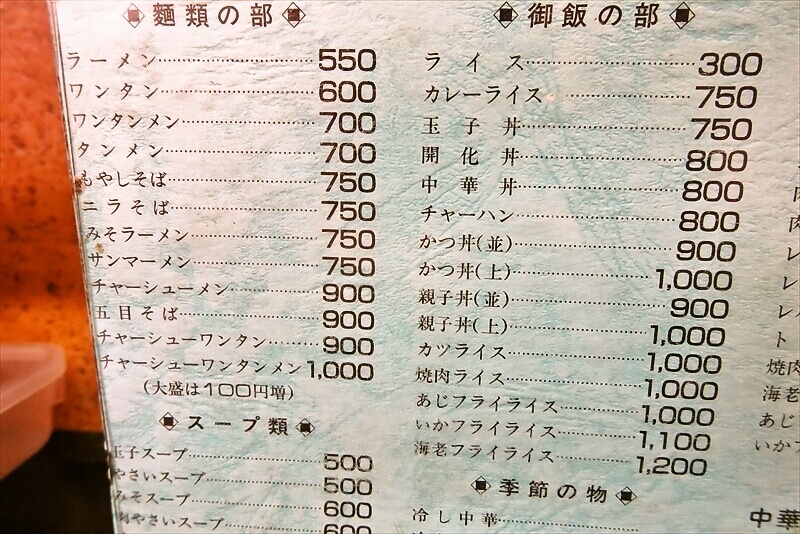 麵類の部
ラーメン 550
ワンタン 600
ワンタンメン 700
タンメン 700
もやしそば 750
ニラそば 750
みそラーメン 750
サンマーメン 750
チャーシューメン 900
五目そば 900
チャーシューワンタン 900
チャーシューワンタンメン 1,000
(大盛は100円増)
スープ類
玉子スープ 500
やさいスープ 500
みそスープ 600
肉やさいスープ 600
御飯の部
ライス 300
カレーライス 750
玉子丼 750
開化丼 800
中華丼 800
チャーハン 800
かつ丼(並) 900
かつ丼(上) 1,000
親子丼(並) 900
親子丼(上) 1,000
カツライス 1,000
焼肉ライス 1,000
あじフライライス 1,000
いかフライライス 1,100
海老フライライス 1,200
季節の物
冷し中華
肉
レ
レ
レバ
ト
焼肉
海老
あじ
いか
中華